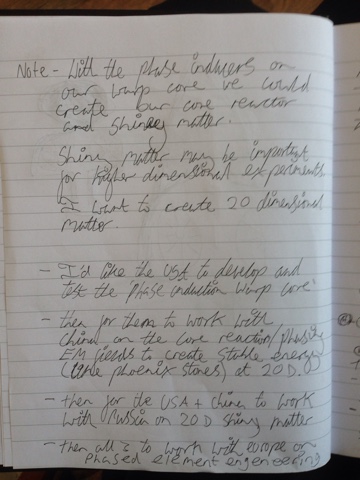 Note - With the phase inducers on
our warp core we could
create our core reactor
and shiney matter.
Shiny matter may be important
for higher dimensional experiments
I want to create 20 dimensional
matter.
- I'd like the USA to develop and
test the phase induction warp core
- then for them to work with
China on the core reaction/phasing
EM fields to create stable energy
(like phoenix stones) at 20 D.
- then for the USA + China to work
with Russia on 20 D shiny matter
- then all 3 to work with europe on
phased element engeneering